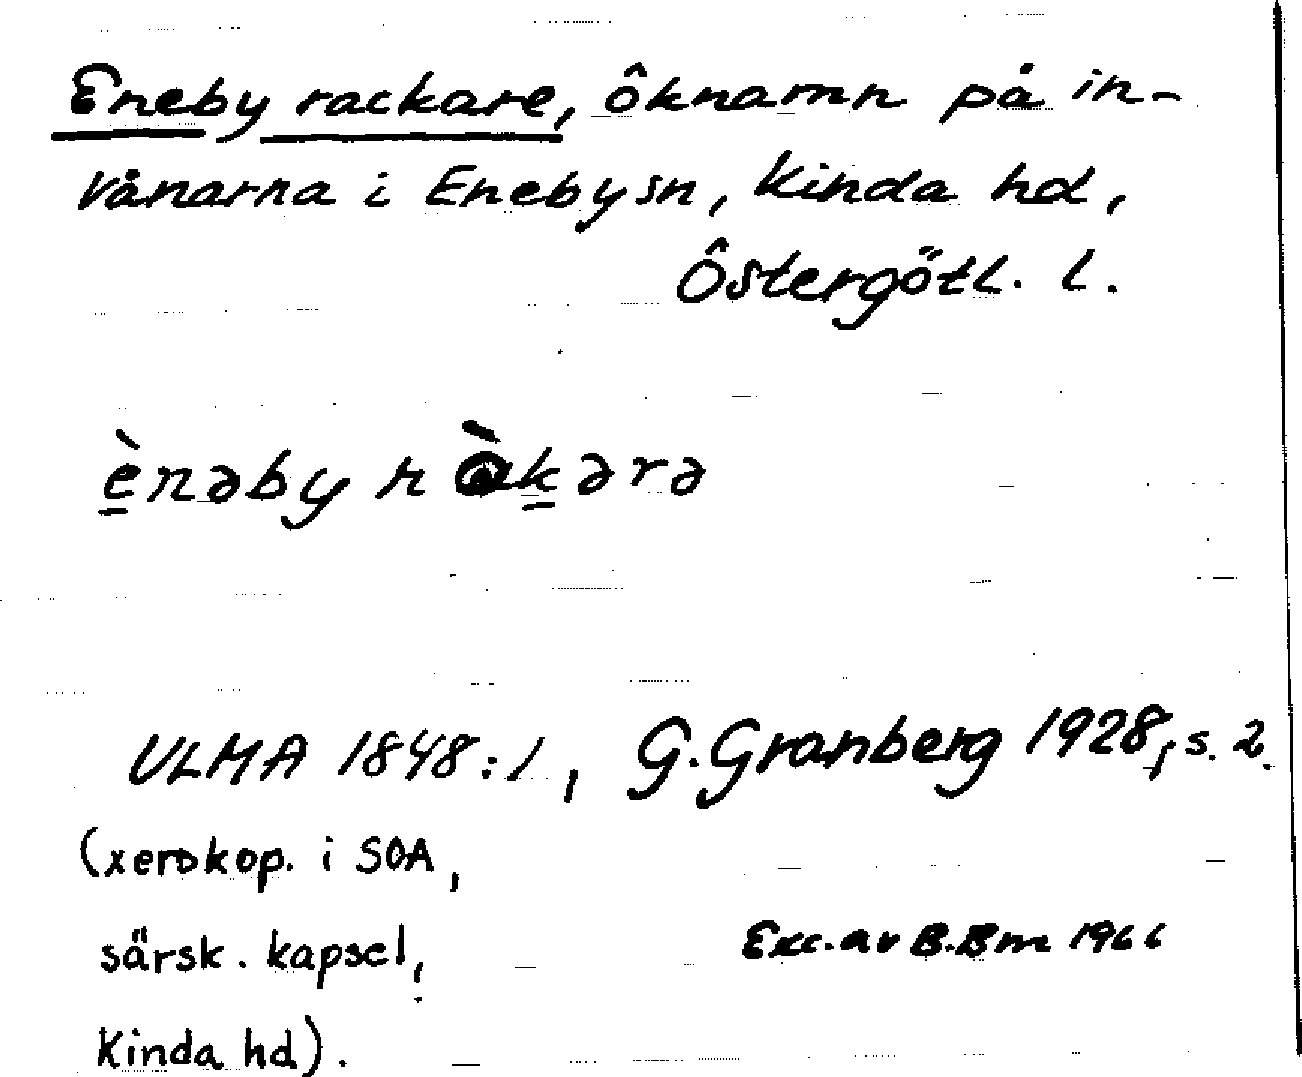 Eneby rackare, öknamn på in-
vånarna i Eneby sn, Kinda hd,
Östergötl. l.
ènəby ràkərə
ULMA 1848:1, G. Granberg 1928, s. 2.
(xerokop. i SOA,
särsk. kapsel,
Kinda hd).
Exc. av B.Bm 1966